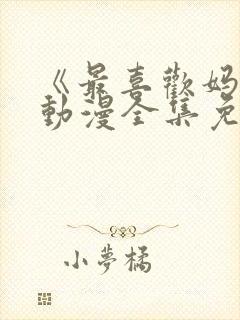 《最喜歡妈
動漫全集免
小夢橘